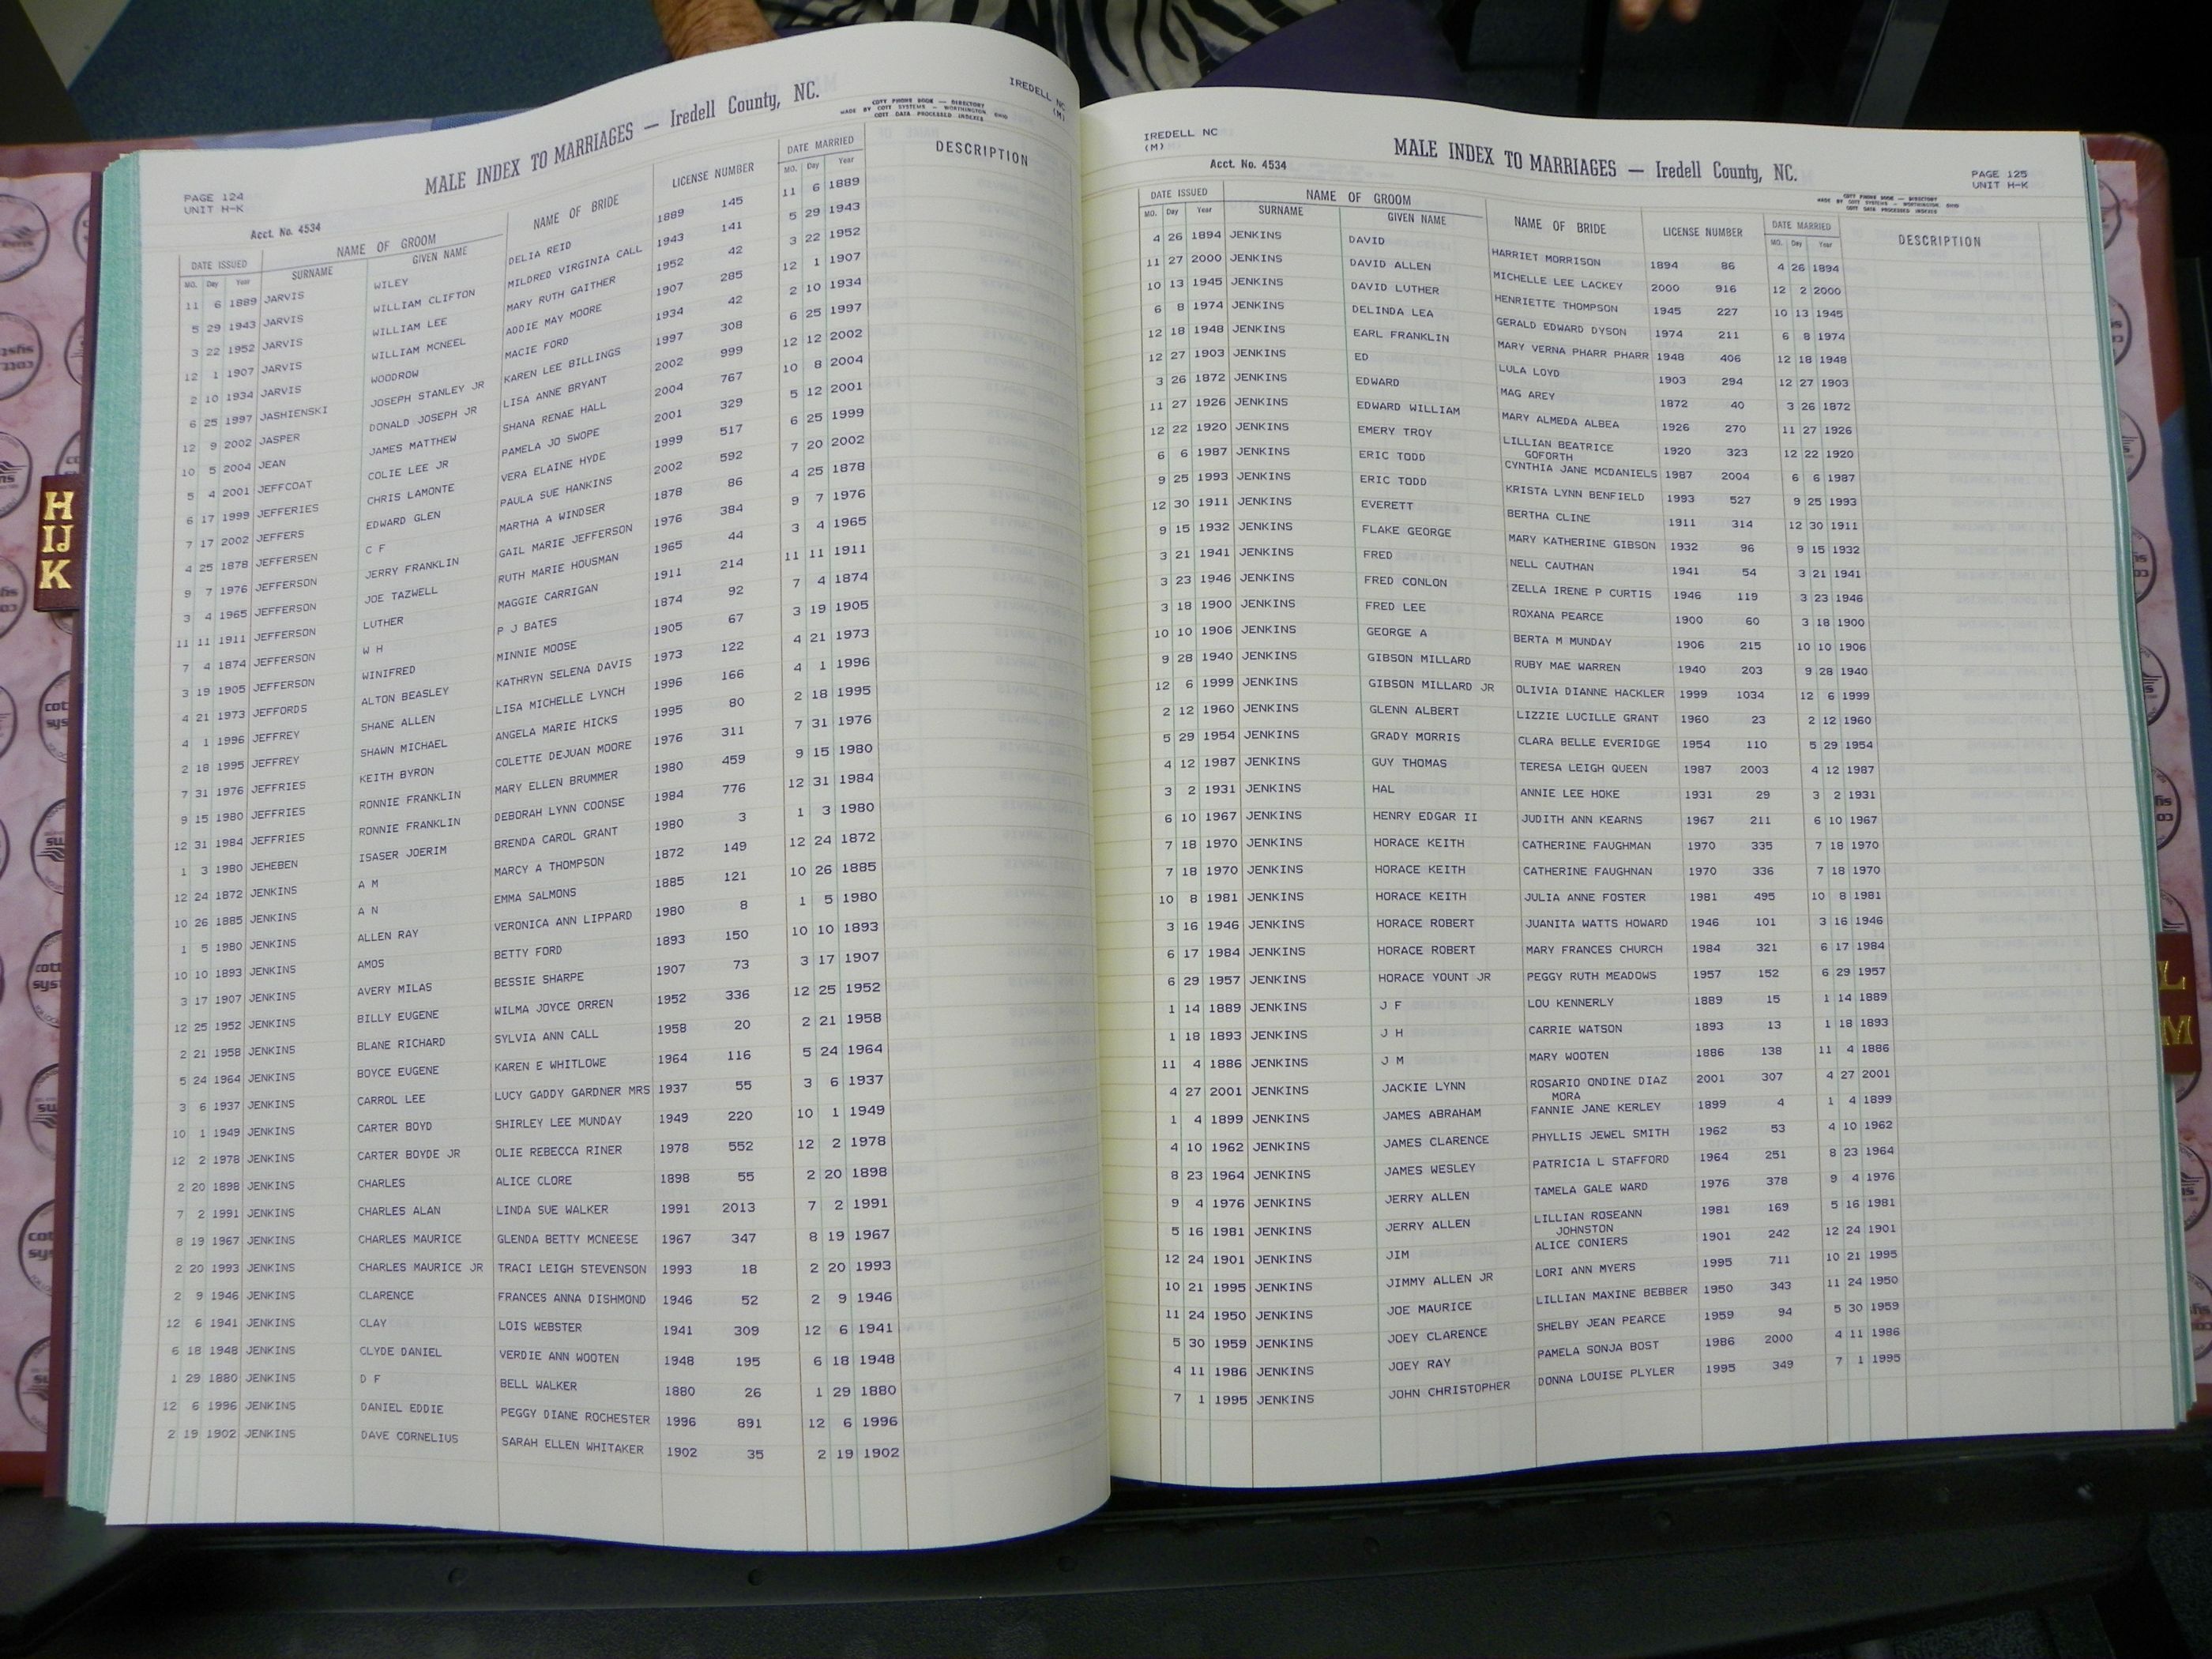 PAGE 124
UNIT H-K
MALE INDEX TO MARRIAGES — Iredell County, NC.
COTT PHONE BOOK — DIRECTORY
MADE BY COTT SYSTEMS — WORTHINGTON, OHIO
COTT DATA PROCESSED INDEXES
IREDELL NC
(M)
Acct. No. 4534
DATE ISSUED NAME OF GROOM NAME OF BRIDE LICENSE NUMBER DATE MARRIED DESCRIPTION
MO. Day Year SURNAME GIVEN NAME MO. Day Year
11 6 1889 JARVIS WILEY DELIA REID 1889 145 11 6 1889
5 29 1943 JARVIS WILLIAM CLIFTON MILDRED VIRGINIA CALL 1943 141 5 29 1943
3 22 1952 JARVIS WILLIAM LEE MARY RUTH GAITHER 1952 42 3 22 1952
12 1 1907 JARVIS WILLIAM MCNEEL ADDIE MAY MOORE 1907 285 12 1 1907
2 10 1934 JARVIS WOODROW MACIE FORD 1934 42 2 10 1934
6 25 1997 JASHIENSKI JOSEPH STANLEY JR KAREN LEE BILLINGS 1997 308 6 25 1997
12 9 2002 JASPER DONALD JOSEPH JR LISA ANNE BRYANT 2002 999 12 12 2002
10 5 2004 JEAN JAMES MATTHEW SHANA RENAE HALL 2004 767 10 8 2004
5 4 2001 JEFFCOAT COLIE LEE JR PAMELA JO SWOPE 2001 329 5 12 2001
6 17 1999 JEFFERIES CHRIS LAMONTE VERA ELAINE HYDE 1999 517 6 25 1999
7 17 2002 JEFFERS EDWARD GLEN PAULA SUE HANKINS 2002 592 7 20 2002
4 25 1878 JEFFERSEN C F MARTHA A WINDSER 1878 86 4 25 1878
9 7 1976 JEFFERSON JERRY FRANKLIN GAIL MARIE JEFFERSON 1976 384 9 7 1976
3 4 1965 JEFFERSON JOE TAZWELL RUTH MARIE HOUSMAN 1965 44 3 4 1965
11 11 1911 JEFFERSON LUTHER MAGGIE CARRIGAN 1911 214 11 11 1911
7 4 1874 JEFFERSON W H P J BATES 1874 92 7 4 1874
3 19 1905 JEFFERSON WINIFRED MINNIE MOOSE 1905 67 3 19 1905
4 21 1973 JEFFORDS ALTON BEASLEY KATHRYN SELENA DAVIS 1973 122 4 21 1973
4 1 1996 JEFFREY SHANE ALLEN LISA MICHELLE LYNCH 1996 166 4 1 1996
2 18 1995 JEFFREY SHAWN MICHAEL ANGELA MARIE HICKS 1995 80 2 18 1995
7 31 1976 JEFFRIES KEITH BYRON COLETTE DEJUAN MOORE 1976 311 7 31 1976
9 15 1980 JEFFRIES RONNIE FRANKLIN MARY ELLEN BRUMMER 1980 459 9 15 1980
12 31 1984 JEFFRIES RONNIE FRANKLIN DEBORAH LYNN COONSE 1984 776 12 31 1984
1 3 1980 JEHEBEN ISASER JOERIM BRENDA CAROL GRANT 1980 3 1 3 1980
12 24 1872 JENKINS A M MARCY A THOMPSON 1872 149 12 24 1872
10 26 1885 JENKINS A N EMMA SALMONS 1885 121 10 26 1885
1 5 1980 JENKINS ALLEN RAY VERONICA ANN LIPPARD 1980 8 1 5 1980
10 10 1893 JENKINS AMOS BETTY FORD 1893 150 10 10 1893
3 17 1907 JENKINS AVERY MILAS BESSIE SHARPE 1907 73 3 17 1907
12 25 1952 JENKINS BILLY EUGENE WILMA JOYCE ORREN 1952 336 12 25 1952
2 21 1958 JENKINS BLANE RICHARD SYLVIA ANN CALL 1958 20 2 21 1958
5 24 1964 JENKINS BOYCE EUGENE KAREN E WHITLOWE 1964 116 5 24 1964
3 6 1937 JENKINS CARROL LEE LUCY GADDY GARDNER MRS 1937 55 3 6 1937
10 1 1949 JENKINS CARTER BOYD SHIRLEY LEE MUNDAY 1949 220 10 1 1949
12 2 1978 JENKINS CARTER BOYDE JR OLIE REBECCA RINER 1978 552 12 2 1978
2 20 1898 JENKINS CHARLES ALICE CLORE 1898 55 2 20 1898
7 2 1991 JENKINS CHARLES ALAN LINDA SUE WALKER 1991 2013 7 2 1991
8 19 1967 JENKINS CHARLES MAURICE GLENDA BETTY MCNEESE 1967 347 8 19 1967
2 20 1993 JENKINS CHARLES MAURICE JR TRACI LEIGH STEVENSON 1993 18 2 20 1993
2 9 1946 JENKINS CLARENCE FRANCES ANNA DISHMOND 1946 52 2 9 1946
12 6 1941 JENKINS CLAY LOIS WEBSTER 1941 309 12 6 1941
6 18 1948 JENKINS CLYDE DANIEL VERDIE ANN WOOTEN 1948 195 6 18 1948
1 29 1880 JENKINS D F BELL WALKER 1880 26 1 29 1880
12 6 1996 JENKINS DANIEL EDDIE PEGGY DIANE ROCHESTER 1996 891 12 6 1996
2 19 1902 JENKINS DAVE CORNELIUS SARAH ELLEN WHITAKER 1902 35 2 19 1902
IREDELL NC
(M)
Acct. No. 4534
MALE INDEX TO MARRIAGES — Iredell County, NC.
PAGE 125
UNIT H-K
COTT PHONE BOOK — DIRECTORY
MADE BY COTT SYSTEMS — WORTHINGTON, OHIO
COTT DATA PROCESSED INDEXES
DATE ISSUED NAME OF GROOM NAME OF BRIDE LICENSE NUMBER DATE MARRIED DESCRIPTION
MO. Day Year SURNAME GIVEN NAME MO. Day Year
4 26 1894 JENKINS DAVID HARRIET MORRISON 1894 86 4 26 1894
11 27 2000 JENKINS DAVID ALLEN MICHELLE LEE LACKEY 2000 916 12 2 2000
10 13 1945 JENKINS DAVID LUTHER HENRIETTE THOMPSON 1945 227 10 13 1945
6 8 1974 JENKINS DELINDA LEA GERALD EDWARD DYSON 1974 211 6 8 1974
12 18 1948 JENKINS EARL FRANKLIN MARY VERNA PHARR PHARR 1948 406 12 18 1948
12 27 1903 JENKINS ED LULA LOYD 1903 294 12 27 1903
3 26 1872 JENKINS EDWARD MAG AREY 1872 40 3 26 1872
11 27 1926 JENKINS EDWARD WILLIAM MARY ALMEDA ALBEA 1926 270 11 27 1926
12 22 1920 JENKINS EMERY TROY LILLIAN BEATRICE 1920 323 12 22 1920
GOFORTH
6 6 1987 JENKINS ERIC TODD CYNTHIA JANE MCDANIELS 1987 2004 6 6 1987
9 25 1993 JENKINS ERIC TODD KRISTA LYNN BENFIELD 1993 527 9 25 1993
12 30 1911 JENKINS EVERETT BERTHA CLINE 1911 314 12 30 1911
9 15 1932 JENKINS FLAKE GEORGE MARY KATHERINE GIBSON 1932 96 9 15 1932
3 21 1941 JENKINS FRED NELL CAUTHAN 1941 54 3 21 1941
3 23 1946 JENKINS FRED CONLON ZELLA IRENE P CURTIS 1946 119 3 23 1946
3 18 1900 JENKINS FRED LEE ROXANA PEARCE 1900 60 3 18 1900
10 10 1906 JENKINS GEORGE A BERTA M MUNDAY 1906 215 10 10 1906
9 28 1940 JENKINS GIBSON MILLARD RUBY MAE WARREN 1940 203 9 28 1940
12 6 1999 JENKINS GIBSON MILLARD JR OLIVIA DIANNE HACKLER 1999 1034 12 6 1999
2 12 1960 JENKINS GLENN ALBERT LIZZIE LUCILLE GRANT 1960 23 2 12 1960
5 29 1954 JENKINS GRADY MORRIS CLARA BELLE EVERIDGE 1954 110 5 29 1954
4 12 1987 JENKINS GUY THOMAS TERESA LEIGH QUEEN 1987 2003 4 12 1987
3 2 1931 JENKINS HAL ANNIE LEE HOKE 1931 29 3 2 1931
6 10 1967 JENKINS HENRY EDGAR II JUDITH ANN KEARNS 1967 211 6 10 1967
7 18 1970 JENKINS HORACE KEITH CATHERINE FAUGHMAN 1970 335 7 18 1970
7 18 1970 JENKINS HORACE KEITH CATHERINE FAUGHNAN 1970 336 7 18 1970
10 8 1981 JENKINS HORACE KEITH JULIA ANNE FOSTER 1981 495 10 8 1981
3 16 1946 JENKINS HORACE ROBERT JUANITA WATTS HOWARD 1946 101 3 16 1946
6 17 1984 JENKINS HORACE ROBERT MARY FRANCES CHURCH 1984 321 6 17 1984
6 29 1957 JENKINS HORACE YOUNT JR PEGGY RUTH MEADOWS 1957 152 6 29 1957
1 14 1889 JENKINS J F LOU KENNERLY 1889 15 1 14 1889
1 18 1893 JENKINS J H CARRIE WATSON 1893 13 1 18 1893
11 4 1886 JENKINS J M MARY WOOTEN 1886 138 11 4 1886
4 27 2001 JENKINS JACKIE LYNN ROSARIO ONDINE DIAZ 2001 307 4 27 2001
MORA
1 4 1899 JENKINS JAMES ABRAHAM FANNIE JANE KERLEY 1899 4 1 4 1899
4 10 1962 JENKINS JAMES CLARENCE PHYLLIS JEWEL SMITH 1962 53 4 10 1962
8 23 1964 JENKINS JAMES WESLEY PATRICIA L STAFFORD 1964 251 8 23 1964
9 4 1976 JENKINS JERRY ALLEN TAMELA GALE WARD 1976 378 9 4 1976
5 16 1981 JENKINS JERRY ALLEN LILLIAN ROSEANN 1981 169 5 16 1981
JOHNSTON
12 24 1901 JENKINS JIM ALICE CONIERS 1901 242 12 24 1901
10 21 1995 JENKINS JIMMY ALLEN JR LORI ANN MYERS 1995 711 10 21 1995
11 24 1950 JENKINS JOE MAURICE LILLIAN MAXINE BEBBER 1950 343 11 24 1950
5 30 1959 JENKINS JOEY CLARENCE SHELBY JEAN PEARCE 1959 94 5 30 1959
4 11 1986 JENKINS JOEY RAY PAMELA SONJA BOST 1986 2000 4 11 1986
7 1 1995 JENKINS JOHN CHRISTOPHER DONNA LOUISE PLYLER 1995 349 7 1 1995
H
IJ
K
L
M